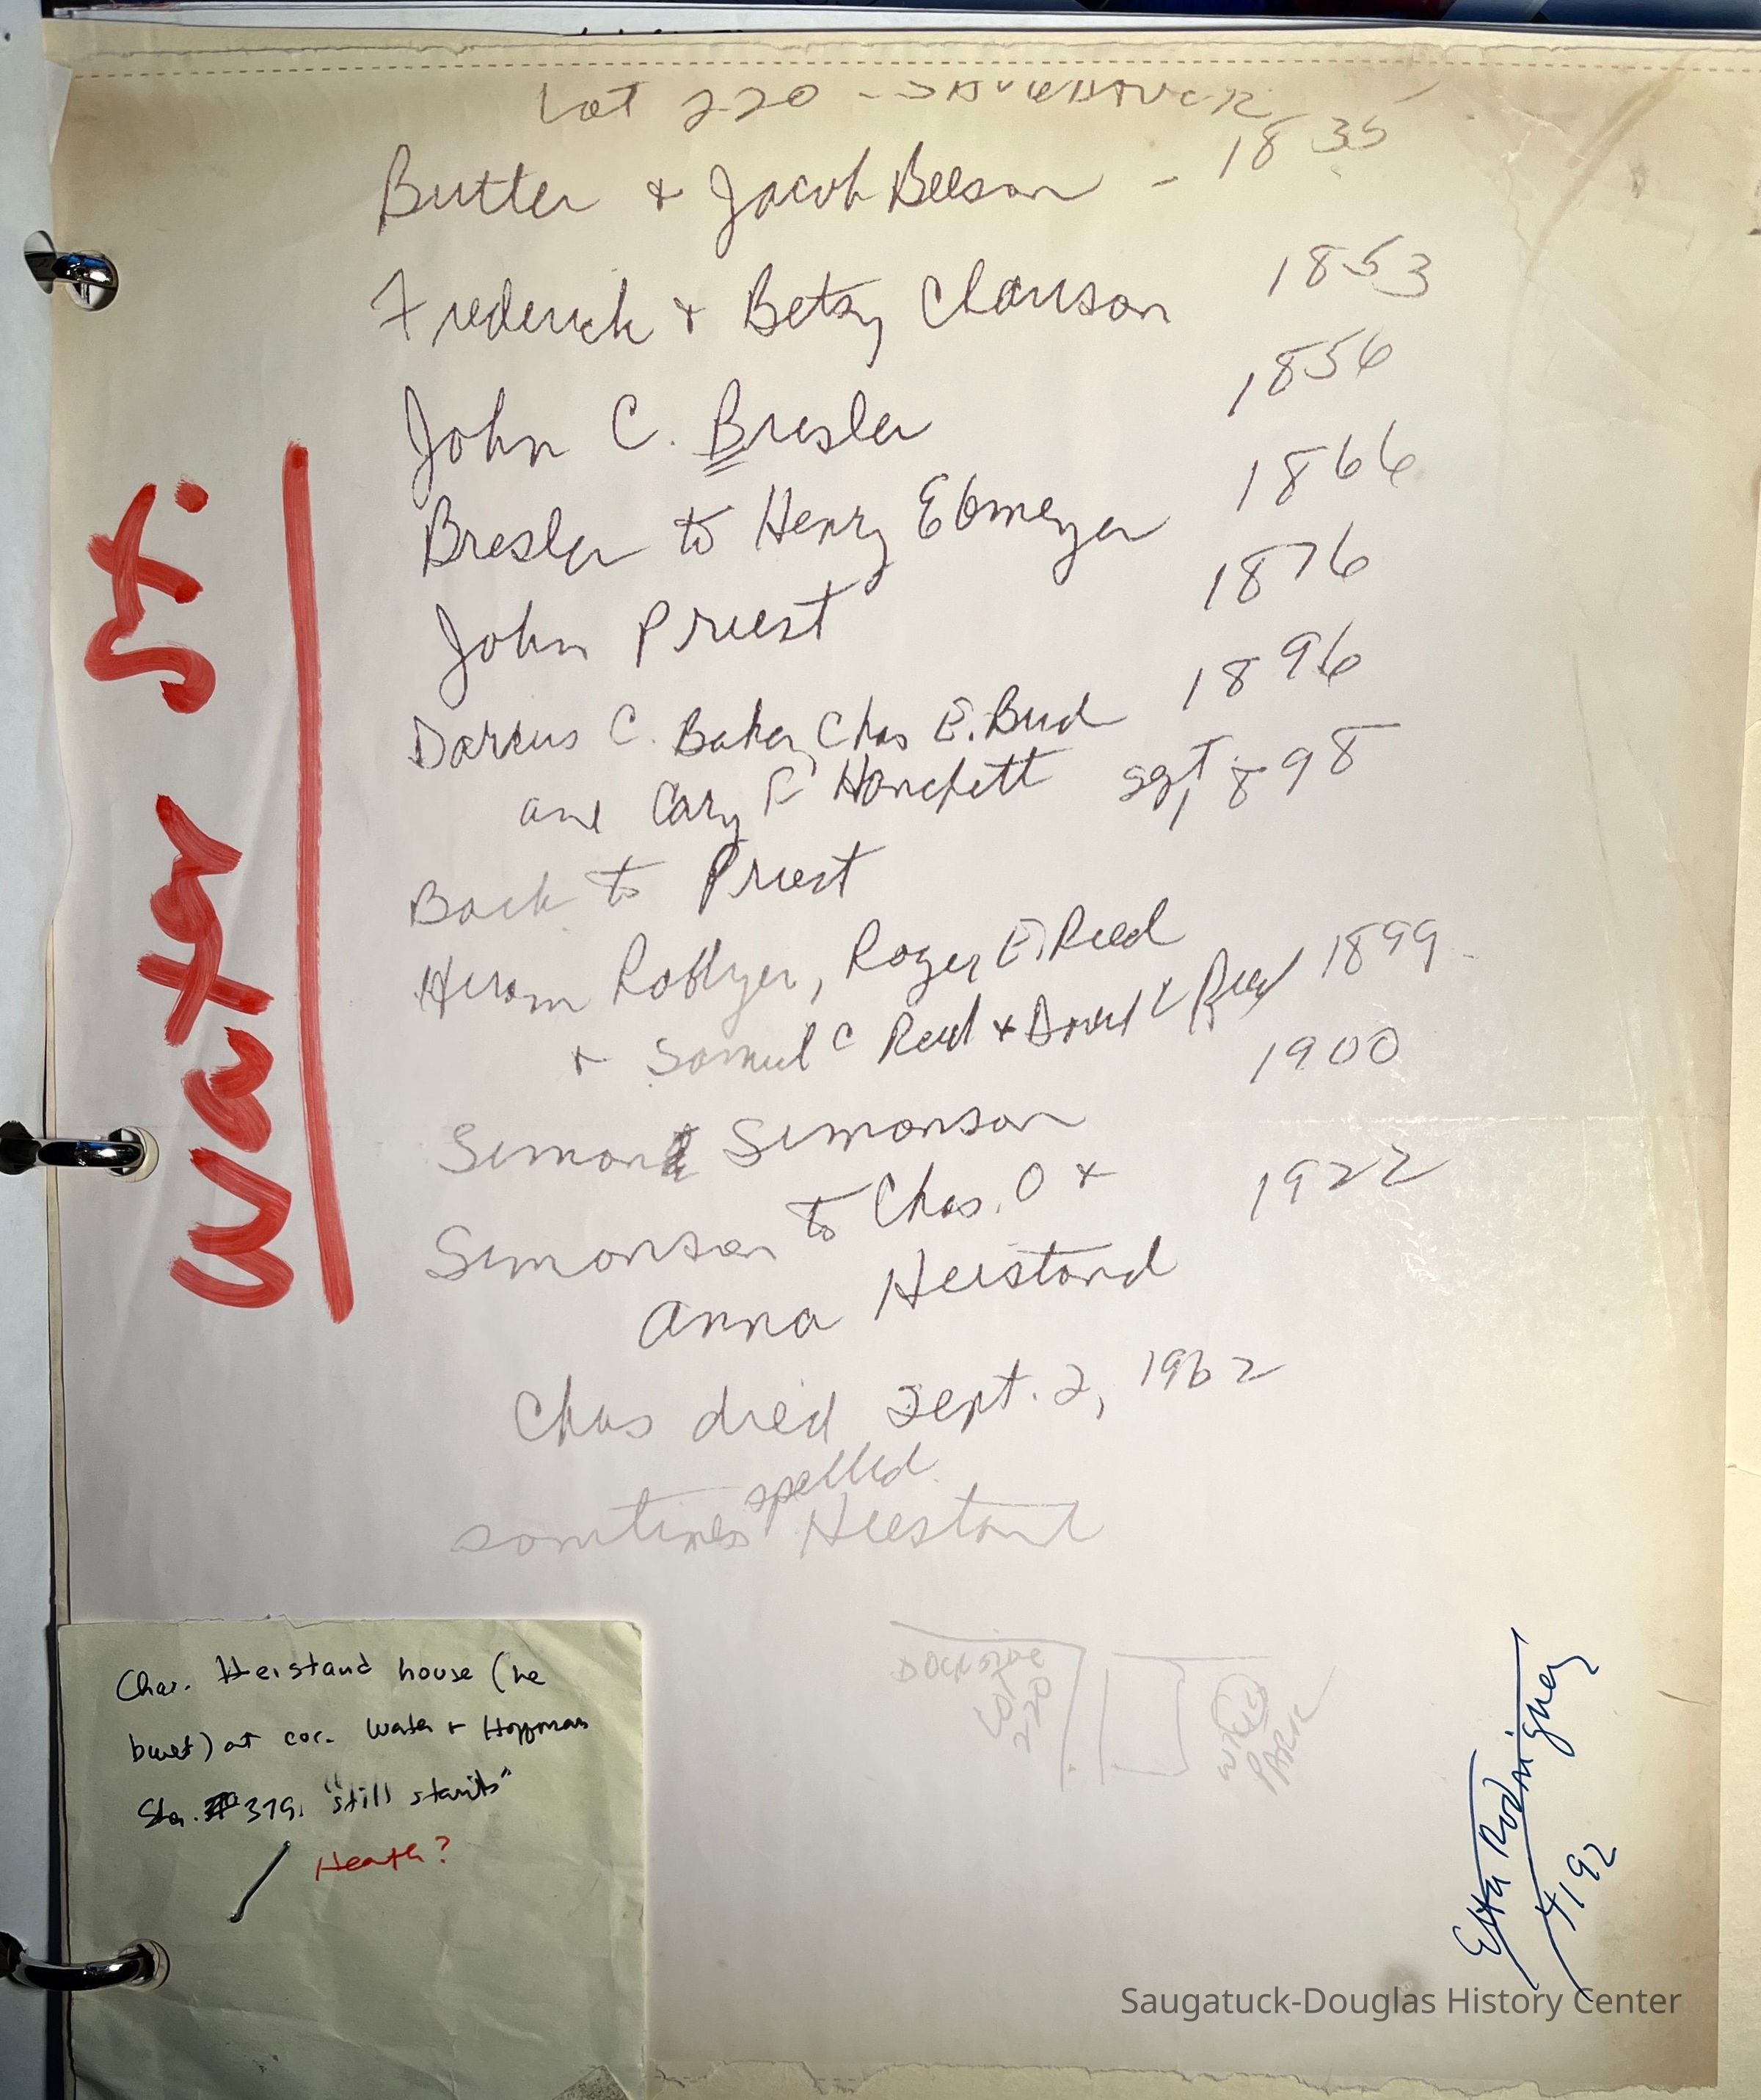 Lot 220 - SAUGATUCK
Butler & Jacob Beeson - 1835
Frederick & Betsy Clauson 1853
John C. Bresler 1856
Bresler to Henry Ebmeyer 1866
John Priest 1876
Darkus C. Baker, Chas E. Bird 1896
and Cary F Hanchett Sgt 1898
Back to Priest
Hiram Roblyer, Roger E. Reed
& Samuel C Reed & David L Reed 1899
Simon Simonson 1900
Simonson to Chas. O & 1922
Anna Heistand
Chas died Sept. 2, 1962
spelled
sometimes Hiestand
Water St.
DOCKSIDE
LOT
220
WICKS
PARK
Chas. Heistand house (he
built) at cor. Water & Hoffman
379. "still stands"
Heath?
Etta Rodriguez
4/92
Saugatuck-Douglas History Center